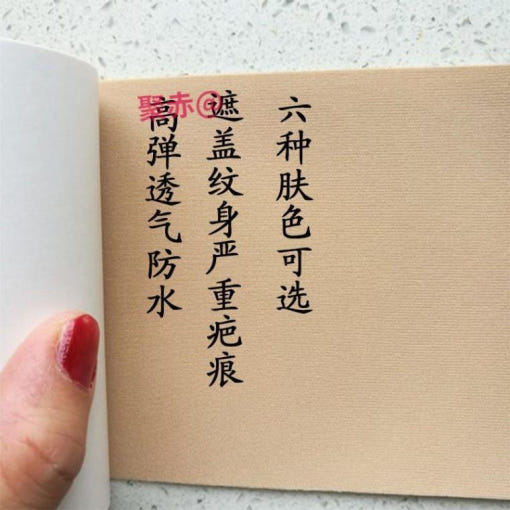 六种肤色可选
遮盖纹身严重疤痕
高弹透气防水
聚赤@